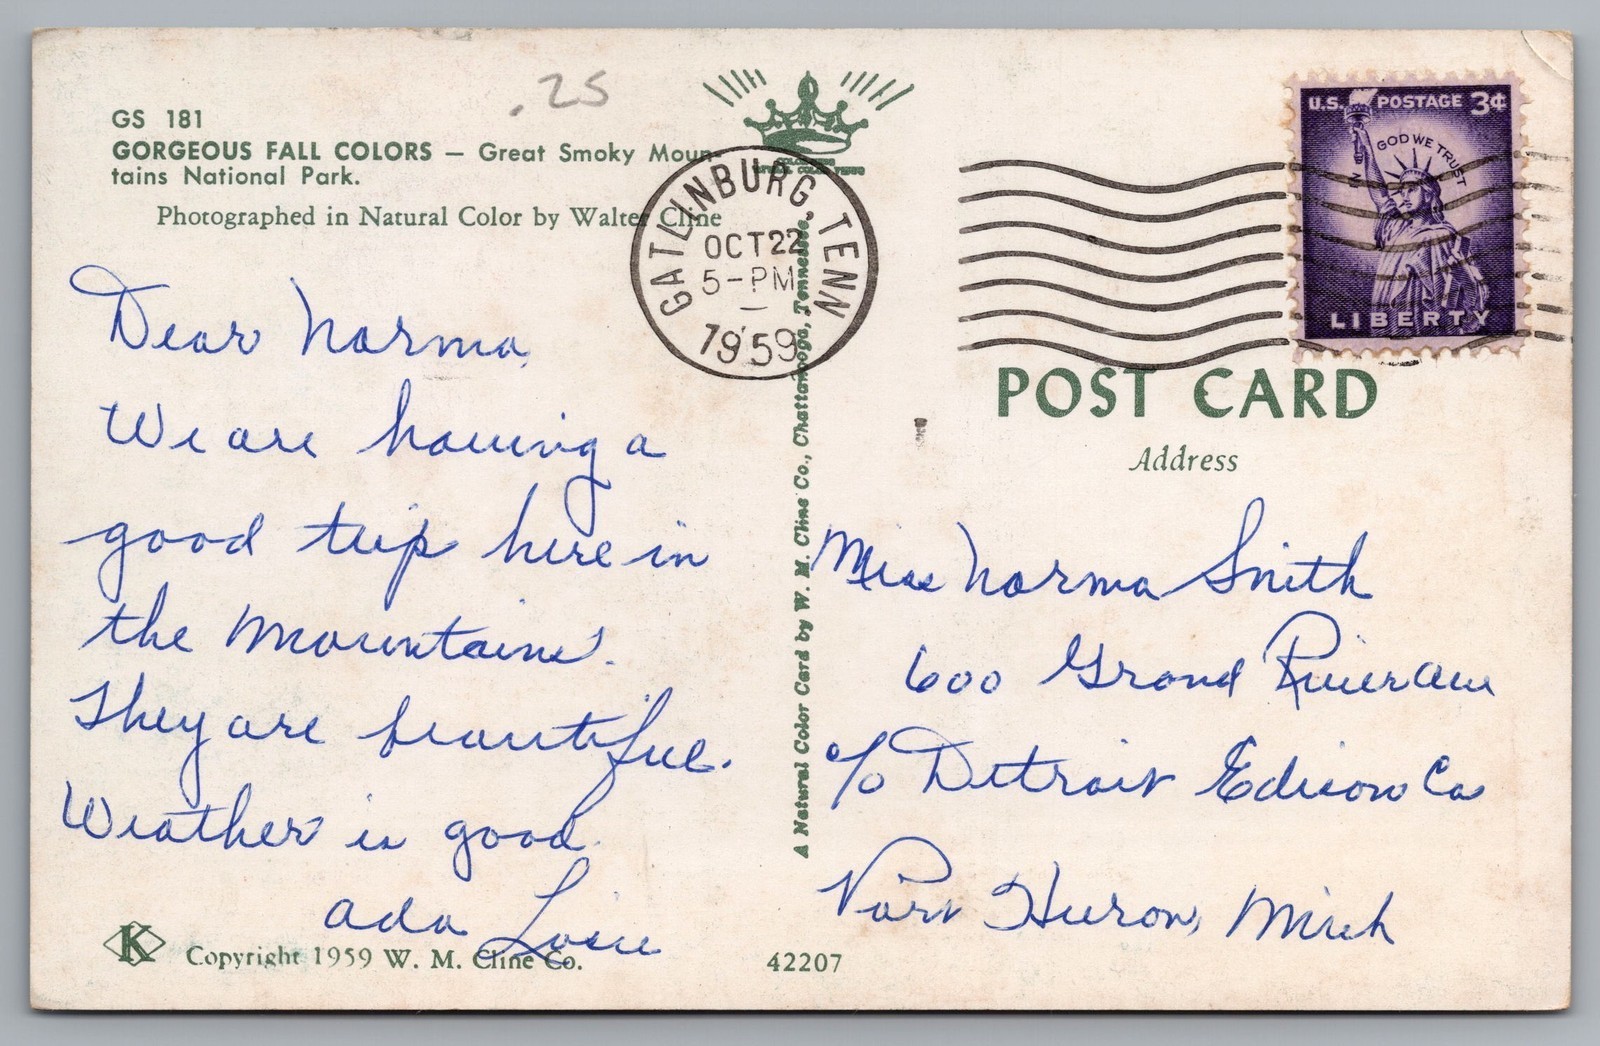 .25
GS 181
GORGEOUS FALL COLORS — Great Smoky Moun-
tains National Park.
Photographed in Natural Color by Walter Cline
Dear Norma,
We are having a
good trip here in
the Mountains.
They are beautiful.
Weather is good.
Ada
K
Copyright 1959 W. M. Cline Co.
42207
A Natural Color Card by W. M. Cline Co., Chattanooga, Tennessee.
GATLINBURG, TENN
OCT 22
5-PM
1959
U.S. POSTAGE 3¢
IN GOD WE TRUST
LIBERTY
POST CARD
Address
Miss Norma Smith
600 Grand River Ave
c/o Detroit Edison Co
Port Huron, Mich